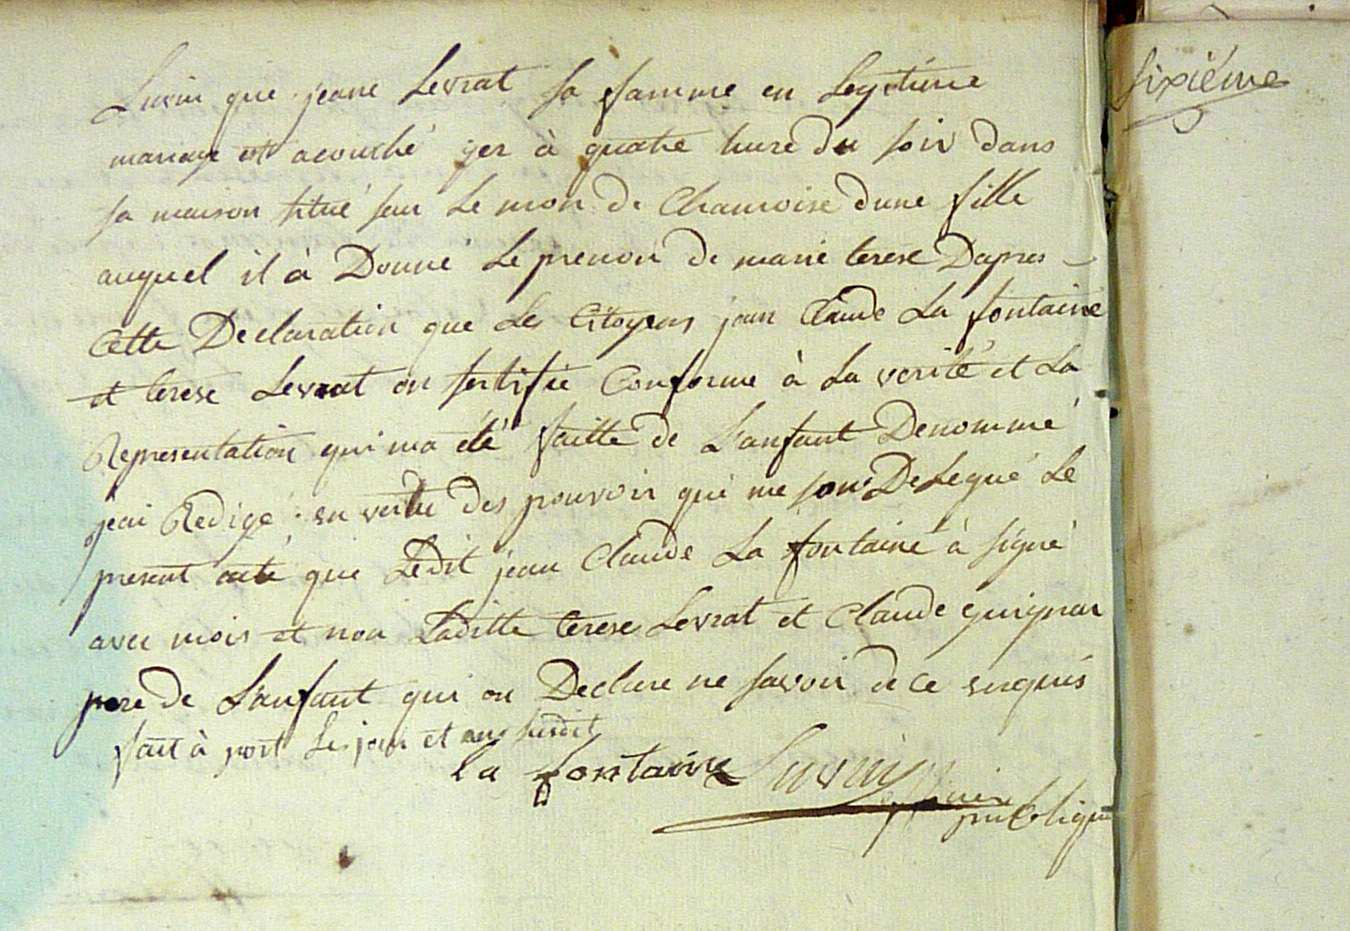 Livin que jeane Levrat sa famme en Legitime
mariage est acouché yer à quatre hure du soir dans
sa maison situé sur Le mon de Chamoise dune fille
auquel il à Donné Le prenon de marie terese Dapres
Cette Declaration que Les Citoyens jean Claude La fontaine
et terese Levrat on sertifié Conforme à La verité et La
Representation qui ma été faitte de L'anfant Denommé
jeai Redigé en vertu des pouvoir qui me son Delegué Le
present acte que Ledit jean Claude La fontaine à signé
avec mois et non Laditte terese Levrat et Claude guignar
pere de L'anfant qui on Declare ne savoir de ce enquis
fait à port Le jour et ans susdit
la fontaine
publique
Sixiéme